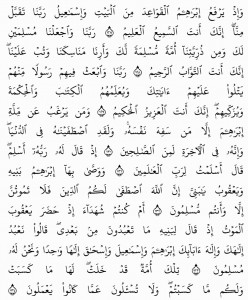 وَإِذْ يَرْفَعُ إِبْرَٰهِـۧمُ ٱلْقَوَاعِدَ مِنَ ٱلْبَيْتِ وَإِسْمَٰعِيلُ رَبَّنَا تَقَبَّلْ
مِنَّآ ۖ إِنَّكَ أَنتَ ٱلسَّمِيعُ ٱلْعَلِيمُ ۝ رَبَّنَا وَٱجْعَلْنَا مُسْلِمَيْنِ
لَكَ وَمِن ذُرِّيَّتِنَآ أُمَّةً مُّسْلِمَةً لَّكَ وَأَرِنَا مَنَاسِكَنَا وَتُبْ عَلَيْنَآ ۖ
إِنَّكَ أَنتَ ٱلتَّوَّابُ ٱلرَّحِيمُ ۝ رَبَّنَا وَٱبْعَثْ فِيهِمْ رَسُولًا مِّنْهُمْ
يَتْلُوا۟ عَلَيْهِمْ ءَايَٰتِكَ وَيُعَلِّمُهُمُ ٱلْكِتَٰبَ وَٱلْحِكْمَةَ
وَيُزَكِّيهِمْ ۚ إِنَّكَ أَنتَ ٱلْعَزِيزُ ٱلْحَكِيمُ ۝ وَمَن يَرْغَبُ عَن مِّلَّةِ
إِبْرَٰهِـۧمَ إِلَّا مَن سَفِهَ نَفْسَهُۥ ۚ وَلَقَدِ ٱصْطَفَيْنَٰهُ فِى ٱلدُّنْيَا ۖ
وَإِنَّهُۥ فِى ٱلْءَاخِرَةِ لَمِنَ ٱلصَّٰلِحِينَ ۝ إِذْ قَالَ لَهُۥ رَبُّهُۥٓ أَسْلِمْ ۖ
قَالَ أَسْلَمْتُ لِرَبِّ ٱلْعَٰلَمِينَ ۝ وَوَصَّىٰ بِهَآ إِبْرَٰهِـۧمُ بَنِيهِ
وَيَعْقُوبُ يَٰبَنِىَّ إِنَّ ٱللَّهَ ٱصْطَفَىٰ لَكُمُ ٱلدِّينَ فَلَا تَمُوتُنَّ
إِلَّا وَأَنتُم مُّسْلِمُونَ ۝ أَمْ كُنتُمْ شُهَدَآءَ إِذْ حَضَرَ يَعْقُوبَ
ٱلْمَوْتُ إِذْ قَالَ لِبَنِيهِ مَا تَعْبُدُونَ مِنۢ بَعْدِى قَالُوا۟ نَعْبُدُ
إِلَٰهَكَ وَإِلَٰهَ ءَابَآئِكَ إِبْرَٰهِـۧمَ وَإِسْمَٰعِيلَ وَإِسْحَٰقَ إِلَٰهًا وَٰحِدًا وَنَحْنُ لَهُۥ
مُسْلِمُونَ ۝ تِلْكَ أُمَّةٌ قَدْ خَلَتْ ۖ لَهَا مَا كَسَبَتْ
وَلَكُم مَّا كَسَبْتُمْ ۖ وَلَا تُسْـَٔلُونَ عَمَّا كَانُوا۟ يَعْمَلُونَ ۝